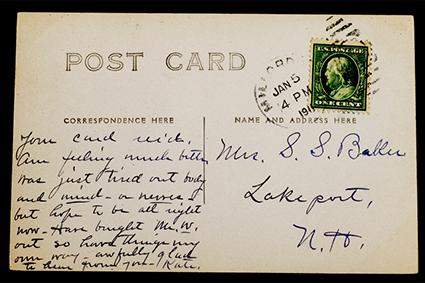 POST CARD
U.S. POSTAGE
ONE CENT
MILFORD
JAN 5
4 PM
191
CORRESPONDENCE HERE
Your card rec'd.
Am feeling much better
was just tired out body
and mind - or nerves -
but hope to be all right
now - Have bought Mr. W.
out so have things my
own way - awfully glad
to hear from you - Kate.
NAME AND ADDRESS HERE
Mrs. S. S. Baker
Lakeport,
N. H.